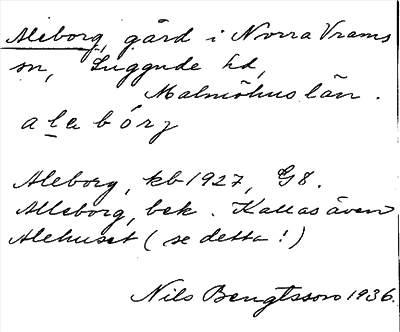 Aleborg, gård i Norra Vrams
sn, Luggude hd,
Malmöhus län.
alebórj
Aleborg, kb 1927, G8.
Alleborg, bek. Kallas även
Alehuset (se detta!)
Nils Bengtsson 1936.